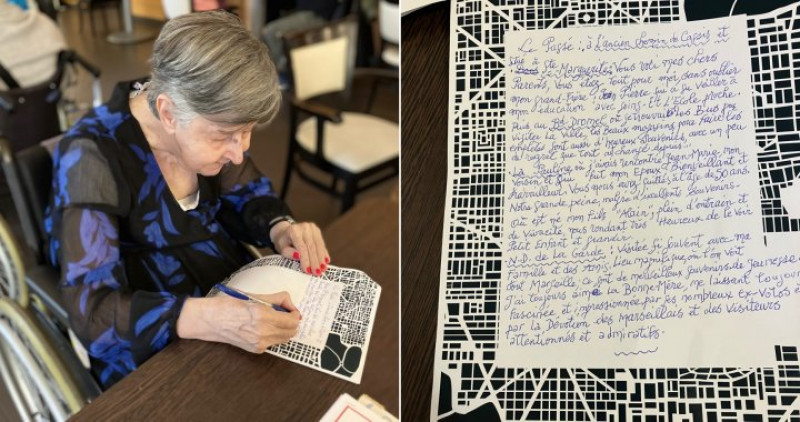 Le Passé : à l'ancien chemin de Cassis et
Ste Marguerite ; Vous voilà mes chers
Parents, Vous étiez tout pour moi, sans oublier
mon grand-Frère : Pierre qui a su Veiller à
mon éducation avec soins. Et l'École proche.
Puis au Bd Dromel où je trouvais les Bus pour
visiter la Ville, les Beaux magasins pour faire les
emplettes sont aussi d'heureux Souvenirs, avec un peu
de regret que tout ait changé depuis...
La Pauline : où j'avais rencontré Jean-Marie, mon
Voisin et qui fut mon Epoux Bienveillant et
merveilleux Vous nous avez quittés à l'âge de 50 ans.
Notre grande peine, malgré d'excellents Souvenirs.
Où est né mon Fils "Alain", plein d'entrain et
de vivacité, nous rendant très Heureux de le Voir
Petit Enfant et grandir.
N.D. de La Garde : Visitée si souvent avec ma
Famille et des Amis, Lieu magnifique, où l'on voit
tout Marseille, ce fut de merveilleux souvenirs de Jeunesse.
J'ai toujours aimé la Bonne-Mère, me laissant toujours
Fascinée et impressionnée par ses nombreux Ex-Votos et
par la Dévotion des Marseillais et des Visiteurs
attentionnés et admiratifs.